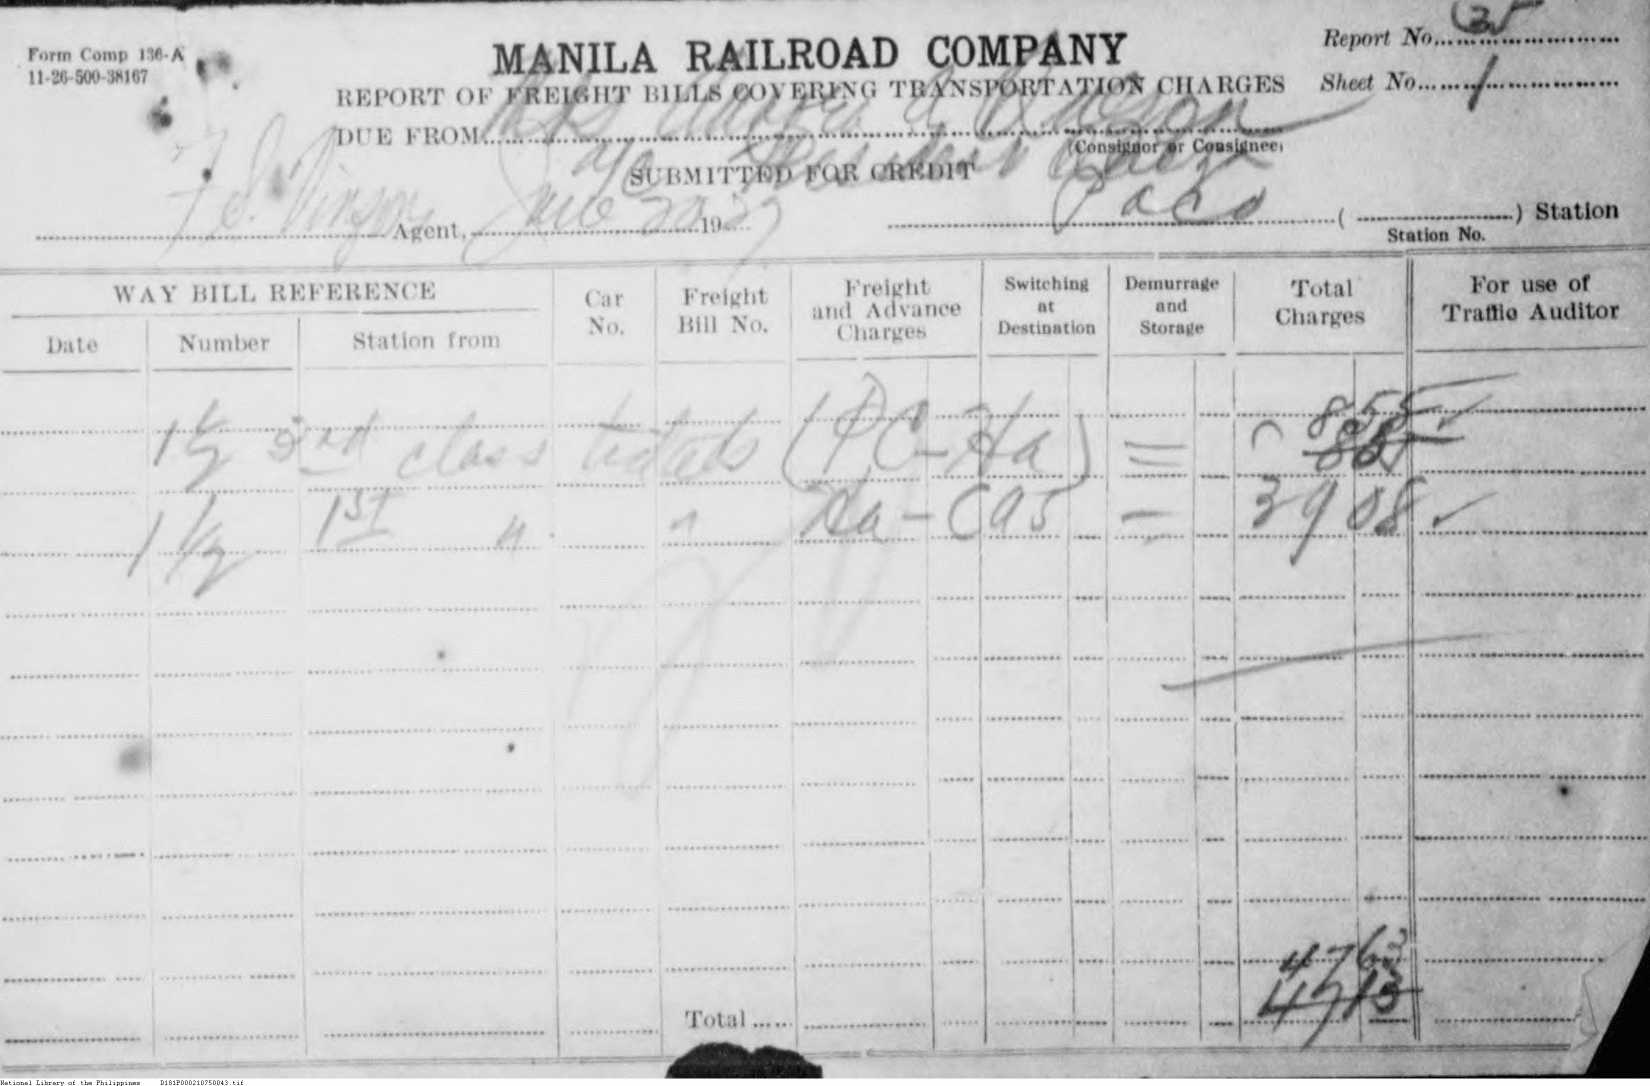 Form Comp 136-A
11-26-500-38167
Report No. 35
Sheet No. 1
MANILA RAILROAD COMPANY
REPORT OF FREIGHT BILLS COVERING TRANSPORTATION CHARGES
DUE FROM
(Consignor or Consignee)
SUBMITTED FOR CREDIT
Agent, June 1927
Paco ( ) Station
Station No.
WAY BILL REFERENCE
Date Number Station from
Car No.
Freight Bill No.
Freight and Advance Charges
Switching at Destination
Demurrage and Storage
Total Charges
For use of Traffic Auditor
8 55
1 1/2 3rd class tickets (PC-Ha) =
1 1/2 1st " " Ha - Cas = 39 08
47 63
Total 47 13
National Library of the Philippines D181P000210750043.tif